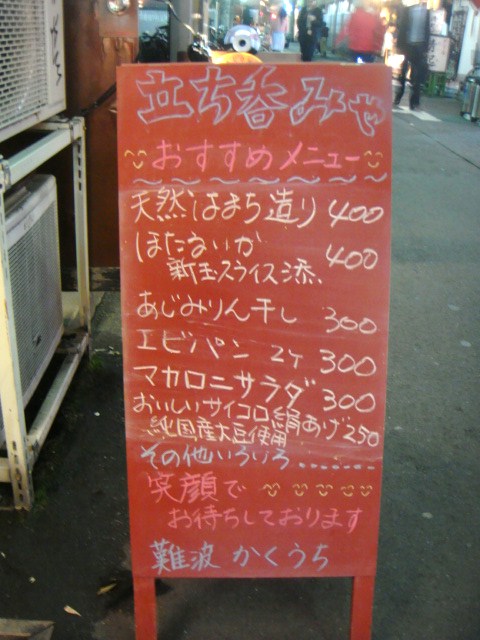 立ち呑みや
おすすめメニュー
天然はまち造り 400
ほたるいか 400
新玉スライス添
あじみりん干し 300
エビパン 2ケ 300
マカロニサラダ 300
おいしいサイコロ絹あげ 250
純国産大豆使用
その他いろいろ.......
笑顔で
お待ちしております
難波 かくうち